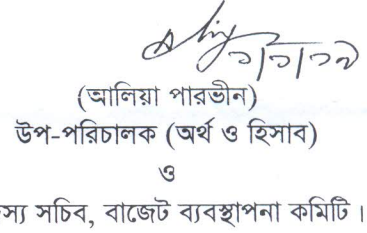 (আলিয়া পারভীন)
উপ-পরিচালক (অর্থ ও হিসাব)
ও
সচিব, বাজেট ব্যবস্থাপনা কমিটি।